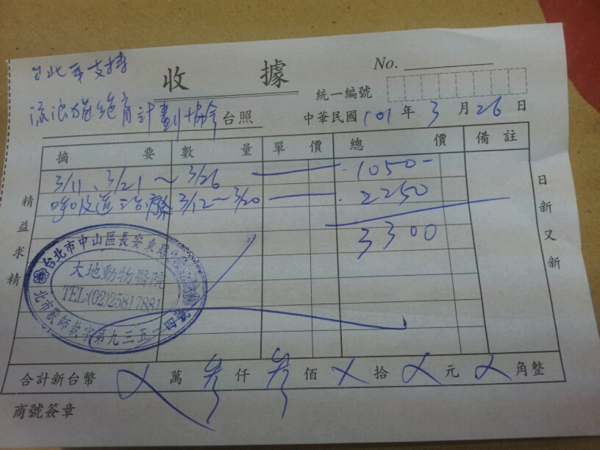 台北市支持
收 據
No.
流浪貓絕育計劃協會 台照
統一編號
中華民國 101 年 3 月 26 日
摘 要 數 量 單 價 總 價 備 註
3/11、3/21～3/26 1050-
呼吸道治療 3/12～3/20 2250
3300
精益求精
日新又新
台北市中山區長安東路
大地動物醫院
TEL:(02)25817881
合計新台幣 ㄨ 萬 参 仟 参 佰 ㄨ 拾 ㄨ 元 ㄨ 角整
商號簽章